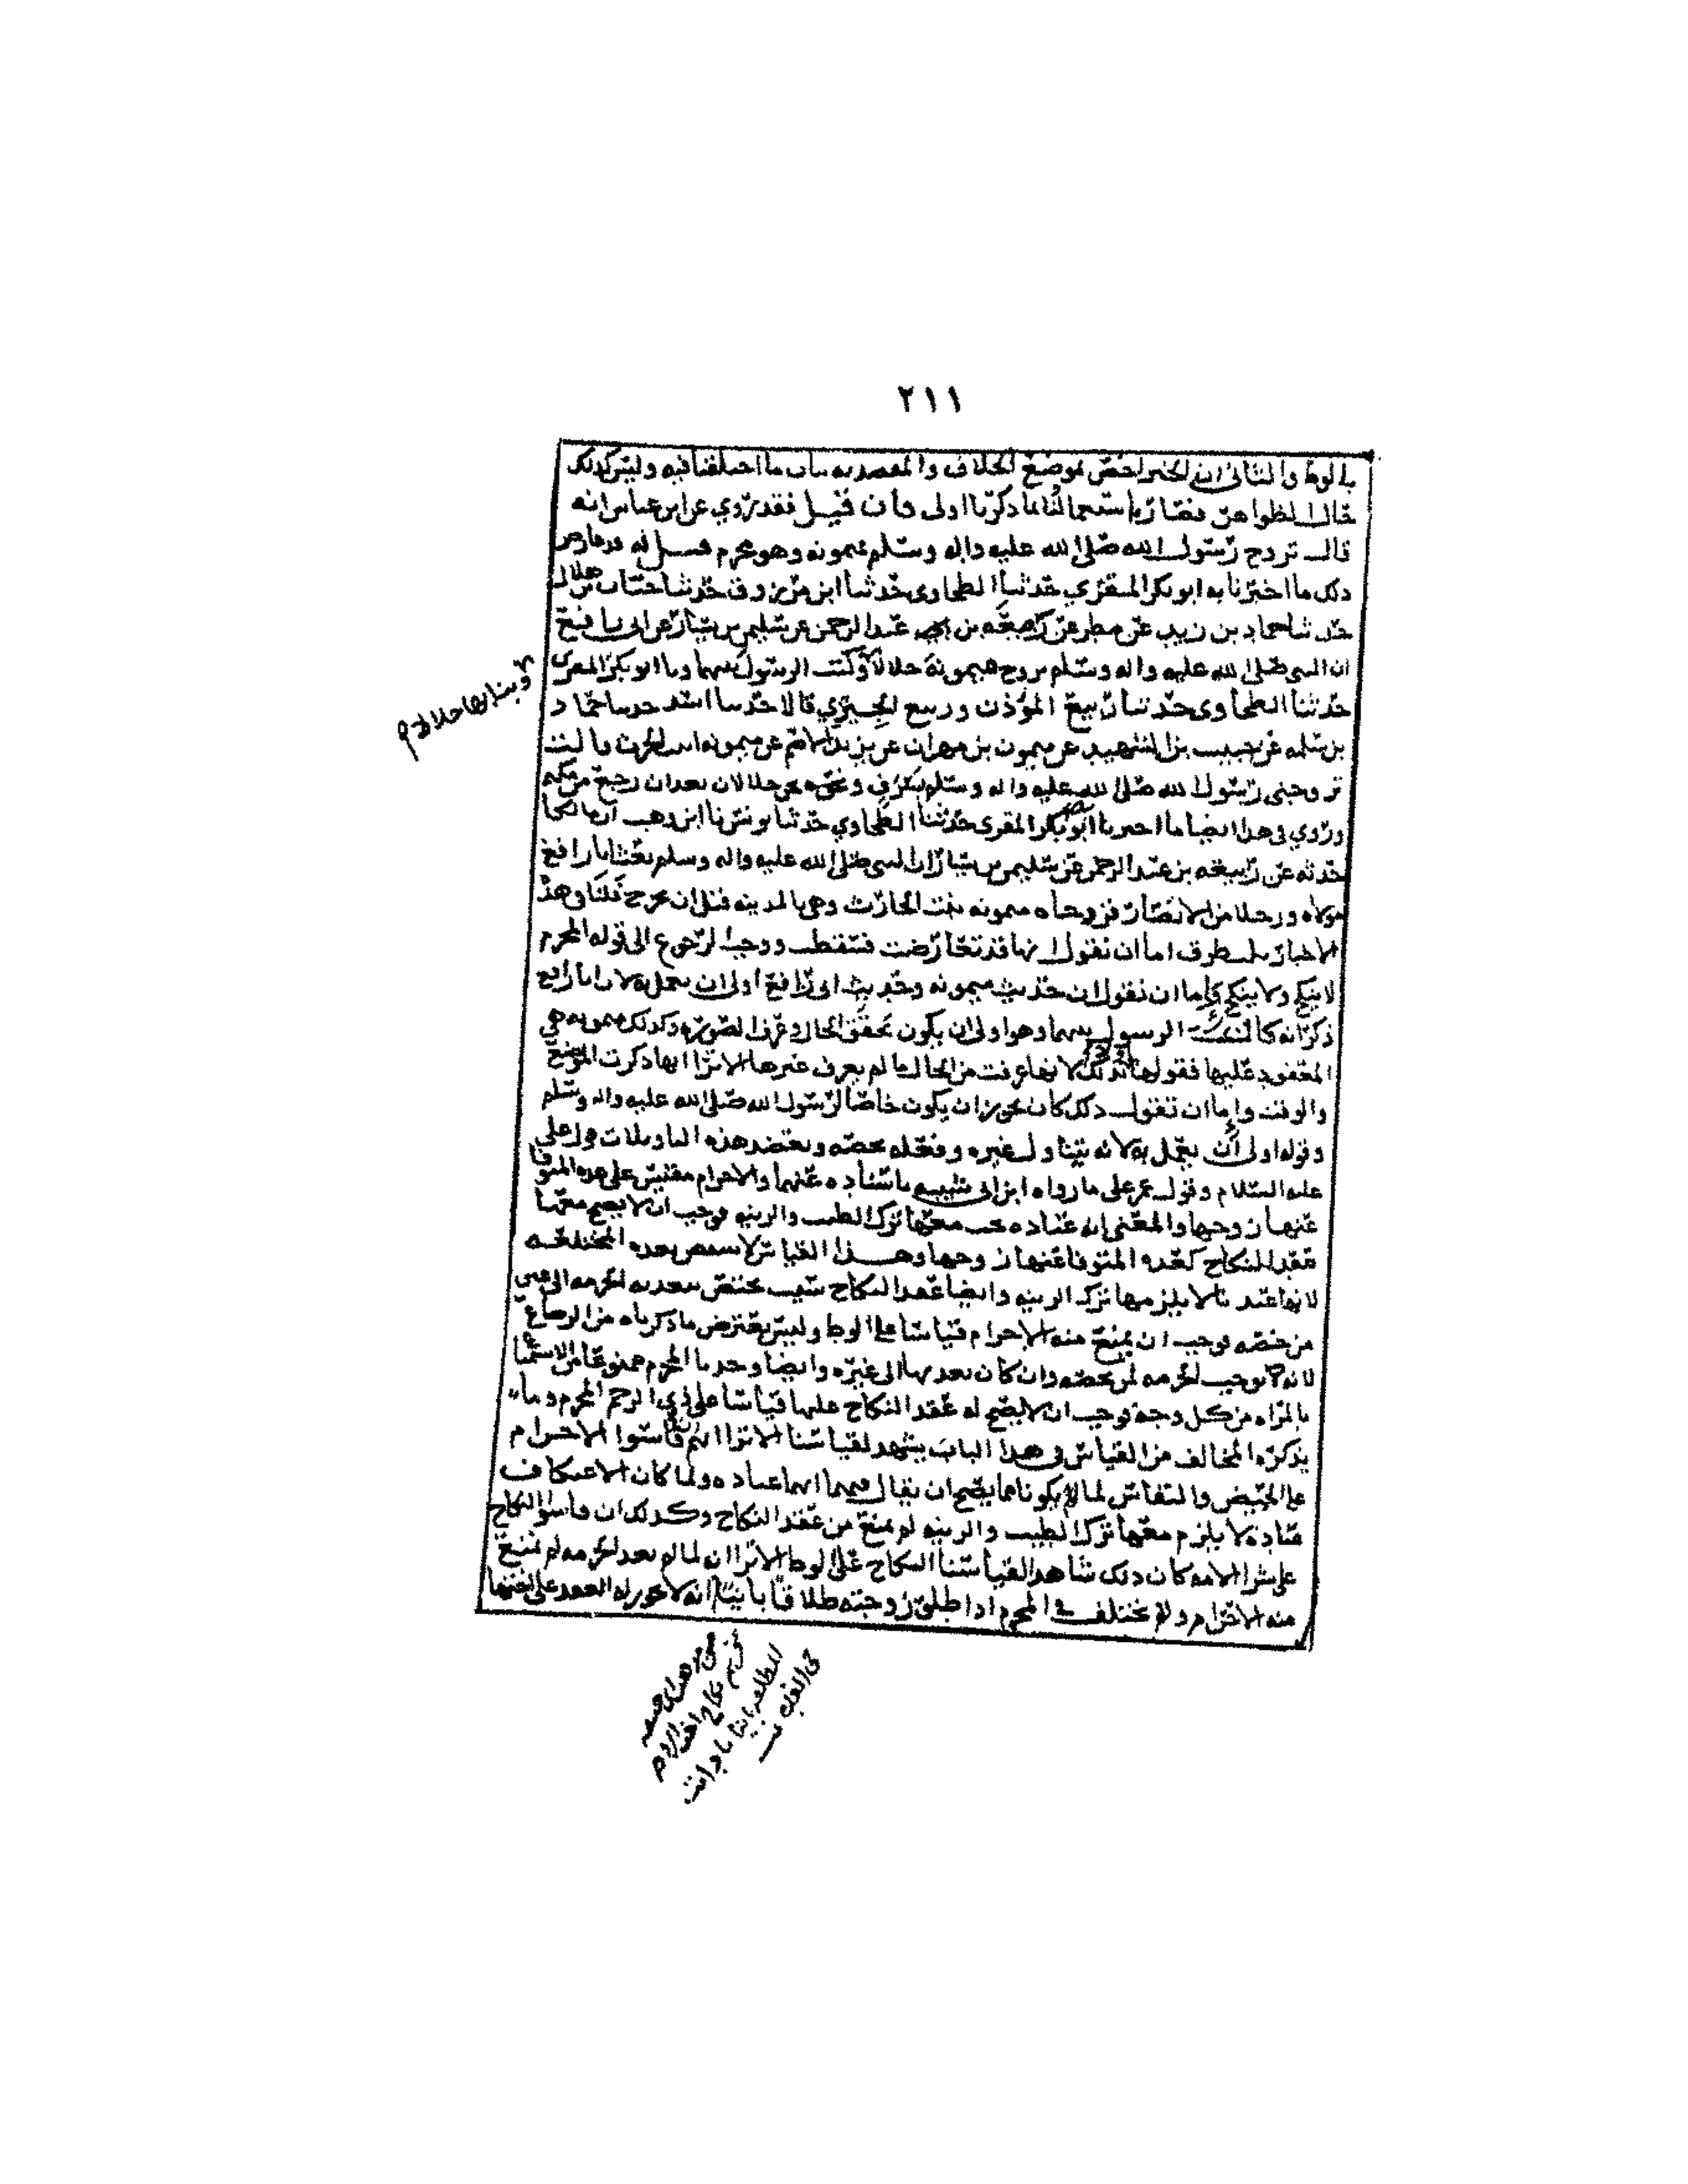 ٢١١
بالوط والثاني ان الخبر اخص بموضع الخلاف والمقصد به بيان ما اختلفنا فيه وليس كذلك
حال الظواهر فصار باستعمالنا ما ذكرنا اولى فان قيل فقد روي عن ابن عباس انه
قال تزوج رسول الله صلى الله عليه واله وسلم ميمونه وهو محرم قيل له قد عارض
ذلك ما اخبرنا به ابو بكر المقري حدثنا الطحاوي حدثنا ابن مرزوق حدثنا حبان بن هلال
حدثنا حماد بن زيد عن مطر عن ربيعه بن عبد الرحمن عن سليمن بن يسار عن ابي رافع
ان النبي صلى الله عليه واله وسلم تزوج ميمونة حلالا وكنت الرسول بينهما وبا ابو بكر المقري
وبنا بها حلالا
حدثنا الطحاوي حدثنا ربيع المؤذن وربيع الجيزي قالا حدثنا اسد حدثنا حماد
بن سلمه عن حبيب بن الشهيد عن ميمون بن مهران عن يزيد بن الاصم عن ميمونه ابنت الحرث قالت
تزوجني رسول الله صلى الله عليه واله وسلم بسرف ونحن حلالان بعد ان رجع من مكه
وروي في هذا ايضا ما اخبرنا ابو بكر المقري حدثنا الطحاوي حدثنا يونس نا ابن وهب ان مالكا
حدثه عن ربيعه بن عبد الرحمن عن سليمن بن يسار ان النبي صلى الله عليه واله وسلم بعث ابا رافع
مولاه ورجلا من الانصار فزوجاه ميمونه بنت الحارث وهي بالمدينه قبل ان يخرج فلنا في هذ
الاخبار طرق اما ان نقول انها قد تعارضت فتسقط ووجب الرجوع الى قوله المحرم
لا ينكح ولا ينكح واما ان نقول ان حديث ميمونه وحديث ابي رافع اولى ان يعمل به لان ابا رافع
ذكر انه كان الرسول بينهما وهو اولى ان يكون تحقق الحال وعرف الصوره وكذلك ميمونه هي
المعقود عليها فقولها لانها عرفت من الحال ما لم يعرف غيرها الا ترا انها ذكرت الموضع
والوقت واما ان نقول ذلك كان يجوز ان يكون خاصا لرسول الله صلى الله عليه واله وسلم
وقوله اولى ان يعمل به لانه يتناول غيره وفعله يخصه ويعتضد هذه التاويلات قول علي
عليه السلام وقول عمر على ما رواه ابن ابي شيبه باسناده عنهما والاحرام مقيس على عده المتوفا
عنها زوجها والمعنى انه عباده يجب معها ترك الطيب والزينه فوجب ان لا يصح معها
عقد النكاح كعده المتوفا عنها زوجها وهذا القياس لا ينتقض بعده المختلعه
لانها عندنا لا يلزمها ترك الزينه وايضا عقد النكاح سبب يختص بعديه الحرمه الى غير
من خصه فوجب ان يمنع منه الاحرام قياسا على الوط وليس يعترض ما ذكرناه من الرضاع
لانه لا يوجب الحرمه لمن يخصه وان كان يعديها الى غيره وايضا وجدنا المحرم ممنوعا من الاستمتا
بالمراه من كل وجه فوجب ان لا يصح له عقد النكاح عليها قياسا على ذي الرحم المحرم وما
يذكره المخالف من القياس في هذا الباب يشهد لقياسنا الا ترا انهم قاسوا الاحرام
على الحيض والنفاس لما لم يكونا مما يصح ان يقال فيهما انهما عباده ولما كان الاعتكاف
عباده لا يلزم معها ترك الطيب والزينه لم يمنع من عقد النكاح وكذلك ان قاسوا النكاح
على شرا الامه كان ذلك شاهدا لقياسنا النكاح على الوط الا ترا ان لما لم يعد الحرمه لم يمنع
منه الاحرام ولم يختلف في المحرم اذا طلق زوجته طلاقا باينا انه لا يجوز له العقد على اختها